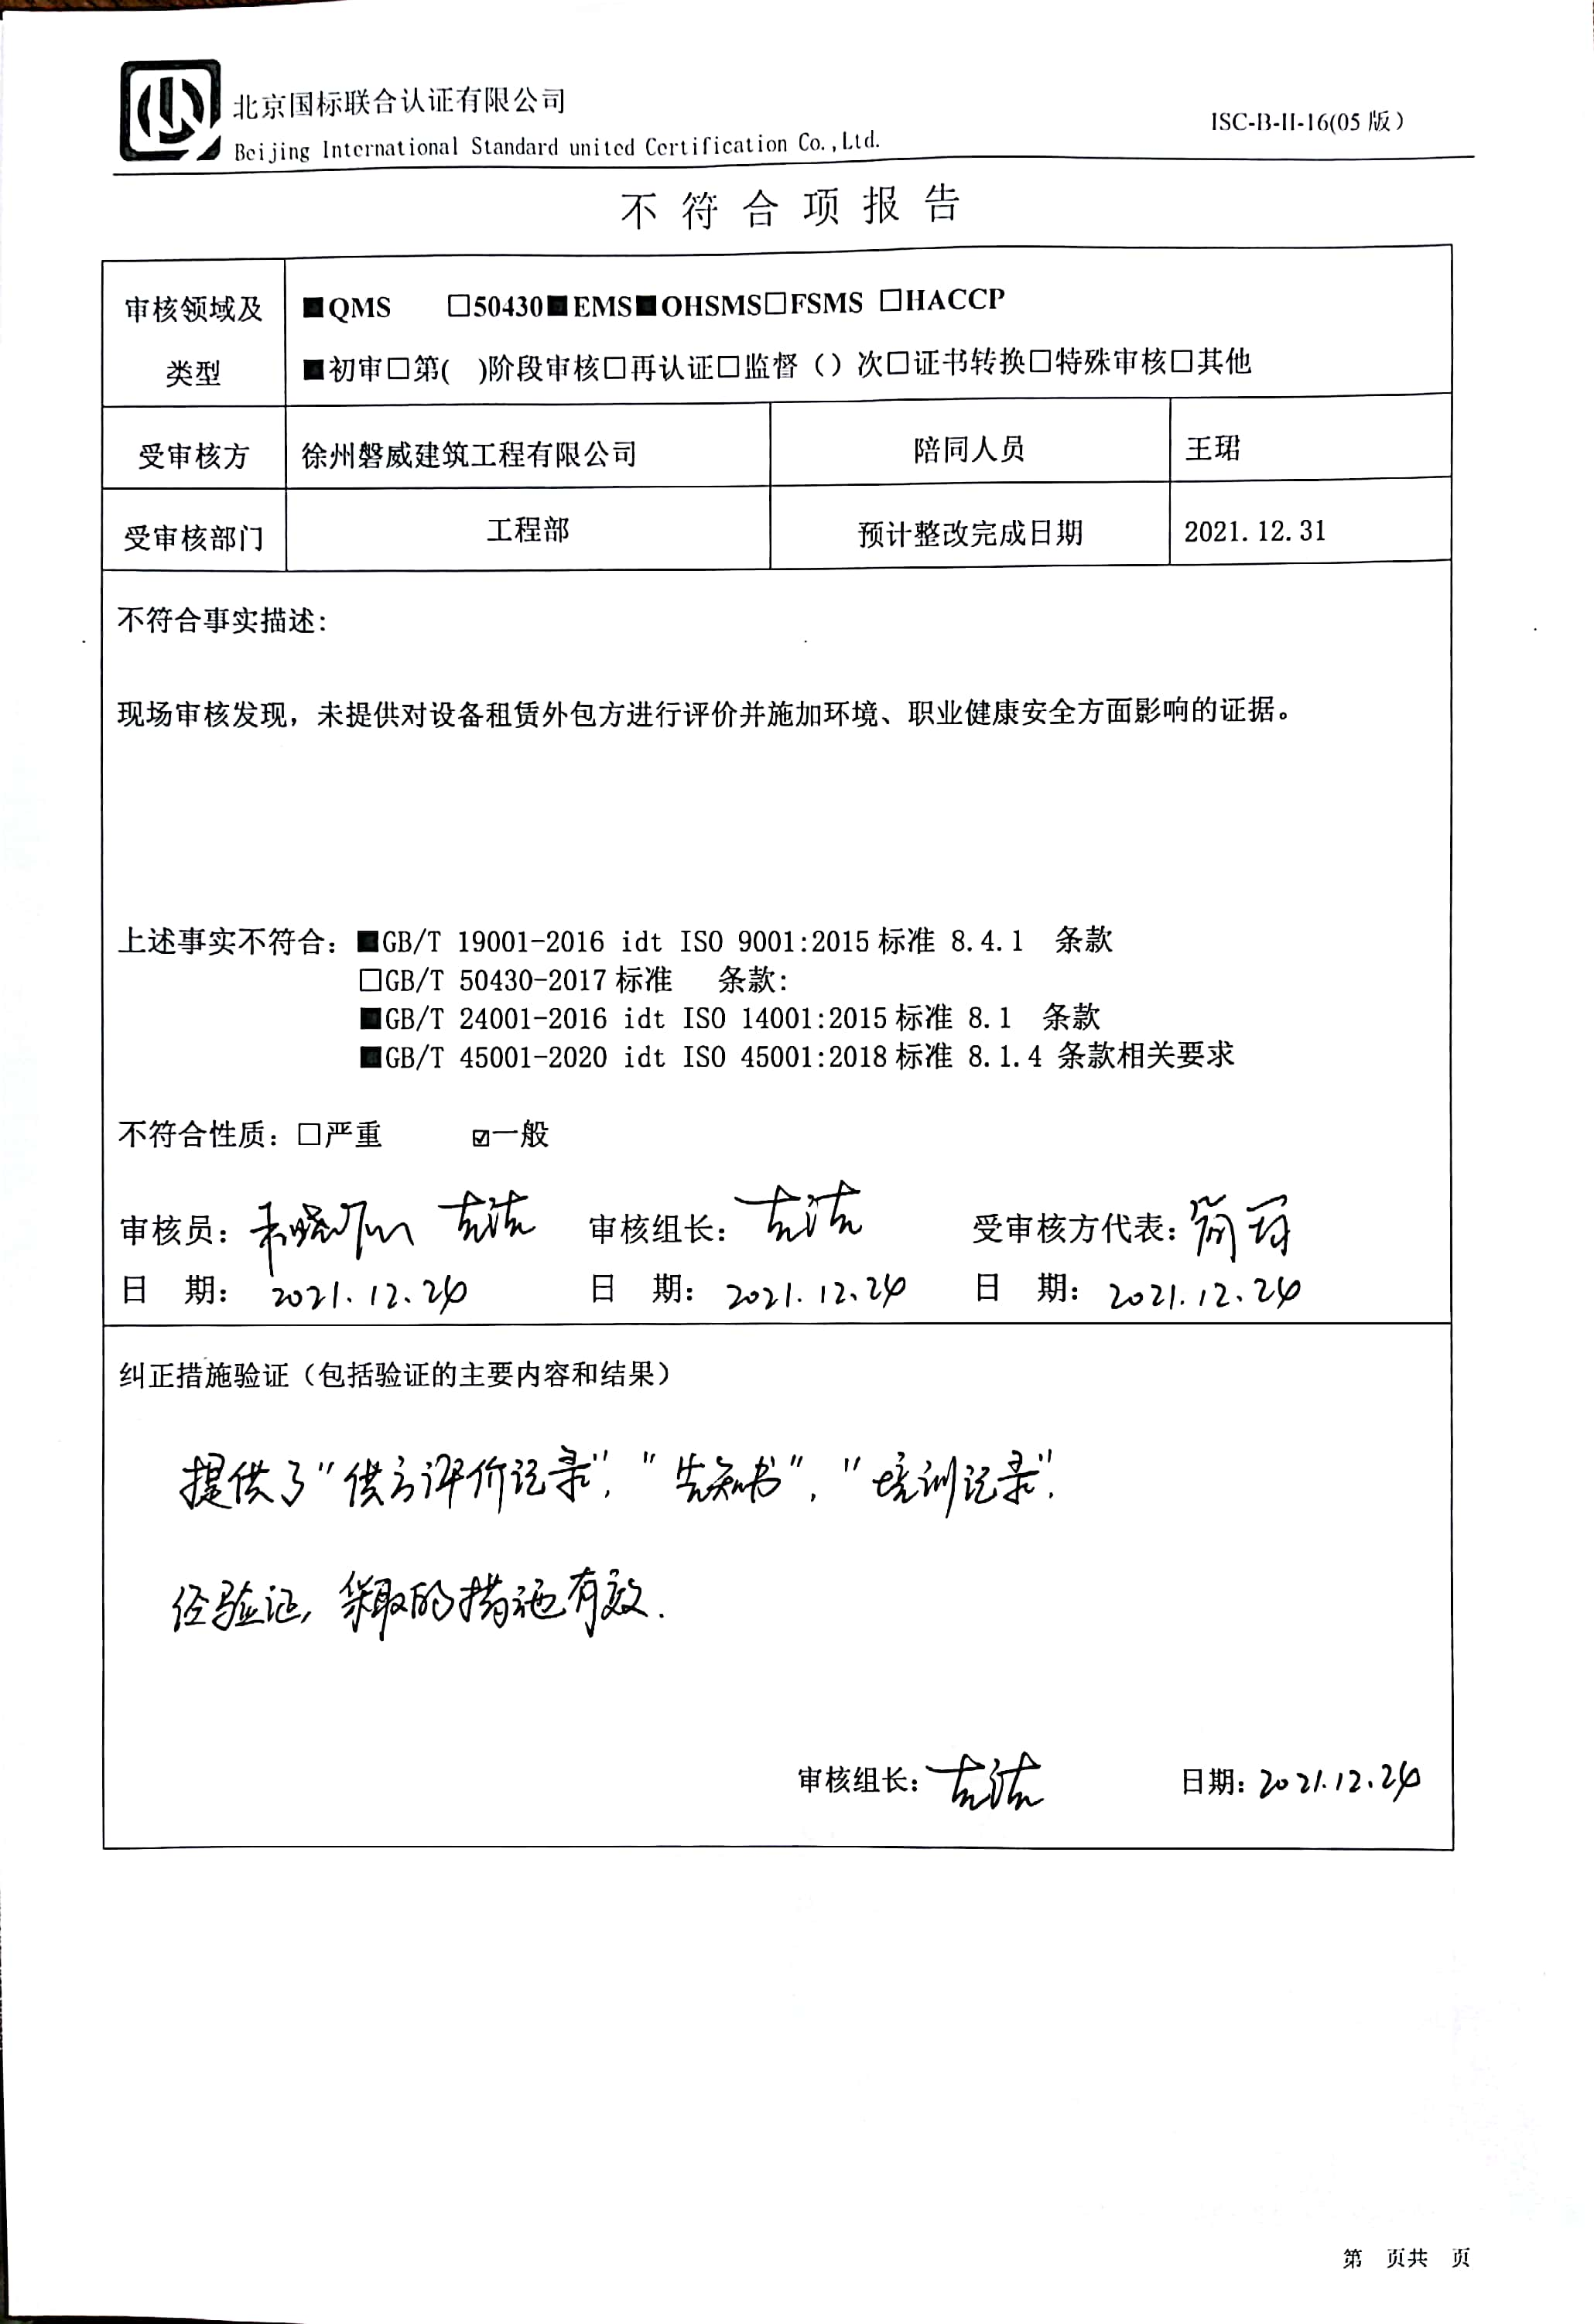 北京国标联合认证有限公司
Beijing International Standard united Certification Co.,Ltd.
ISC-B-II-16(05版)
不符合项报告
审核领域及类型
■QMS □50430■EMS■OHSMS□FSMS □HACCP
■初审□第( )阶段审核□再认证□监督（）次□证书转换□特殊审核□其他
受审核方 徐州磐威建筑工程有限公司 陪同人员 王珺
受审核部门 工程部 预计整改完成日期 2021.12.31
不符合事实描述：
现场审核发现，未提供对设备租赁外包方进行评价并施加环境、职业健康安全方面影响的证据。
上述事实不符合：■GB/T 19001-2016 idt ISO 9001:2015标准 8.4.1 条款
□GB/T 50430-2017标准 条款：
■GB/T 24001-2016 idt ISO 14001:2015标准 8.1 条款
■GB/T 45001-2020 idt ISO 45001:2018标准 8.1.4 条款相关要求
不符合性质：□严重 ☑一般
审核员： 审核组长： 受审核方代表：
日 期：2021.12.24 日 期：2021.12.24 日 期：2021.12.24
纠正措施验证（包括验证的主要内容和结果）
提供了"供方评价记录"，"告知书"，"培训记录"，
经验证，采取的措施有效.
审核组长： 日期：2021.12.24
第 页共 页